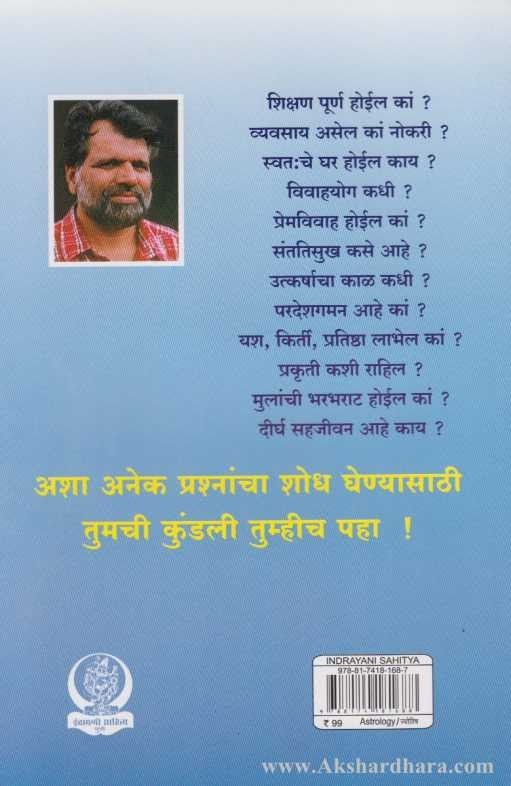 शिक्षण पूर्ण होईल कां ?
व्यवसाय असेल कां नोकरी ?
स्वतःचे घर होईल काय ?
विवाहयोग कधी ?
प्रेमविवाह होईल कां ?
संततिसुख कसे आहे ?
उत्कर्षाचा काळ कधी ?
परदेशगमन आहे कां ?
यश, किर्ती, प्रतिष्ठा लाभेल कां ?
प्रकृती कशी राहिल ?
मुलांची भरभराट होईल कां ?
दीर्घ सहजीवन आहे काय ?
अशा अनेक प्रश्नांचा शोध घेण्यासाठी
तुमची कुंडली तुम्हीच पहा !
इंद्रायणी साहित्य
पुणे
INDRAYANI SAHITYA
978-81-7418-168-7
₹ 99 Astrology/ज्योतिष
www.Akshardhara.com